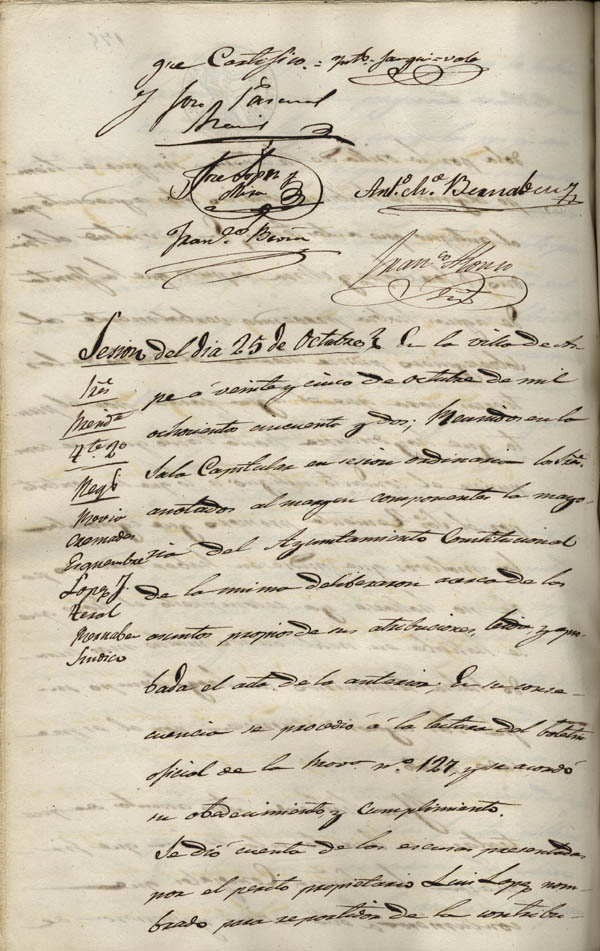 que Certifico.=
Antº. Mª. Bernabeu
Franco. Alonso
Sesion del dia 25 de Octubre
En la villa de As-
pe á veinte y cinco de octubre de mil
ochociento cincuenta y dos; Reunidos en la
Sala Capitular en sesion ordinaria los Sres.
anotados al margen componentes la mayo-
ria del Ayuntamiento Constitucional
de la misma deliberaron acerca de los
asuntos propios de sus atribuciones, leida, y apro-
bada el acta de la anterior, En su conse-
cuencia se procedió á la lectura del boletin
oficial de la Prova. nº. 127, y se acordó
su obedecimiento y cumplimiento.
Se dió cuenta de las escusas presentadas
por el perito propietario Luis Lopez nom-
brado para repartidor de la contribu-
Sres
4te. 2º
Regs
Cremades
Esquembre
Lopez J.
Bernabeu
Sindico